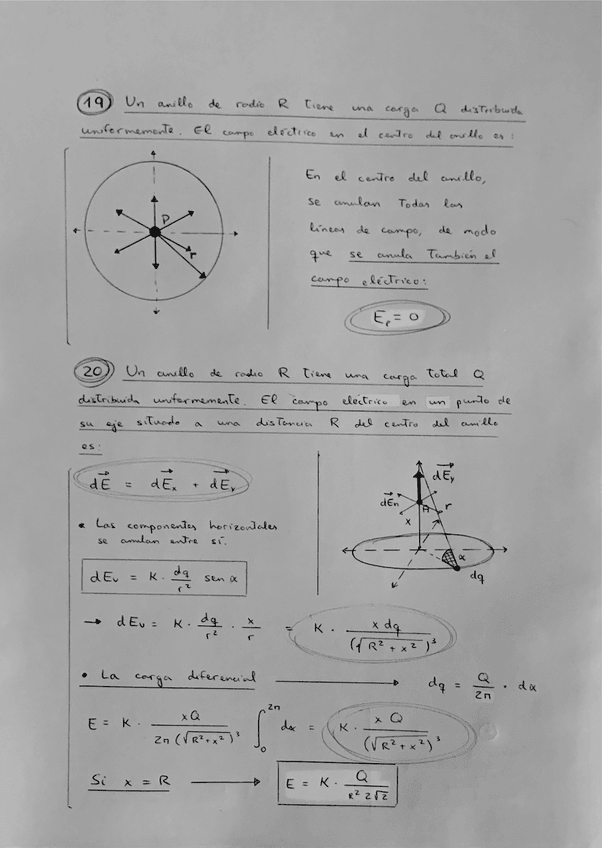 19 Un anillo de radio R tiene una carga Q distribuida
uniformemente. El campo eléctrico en el centro del anillo es:
P
r
En el centro del anillo,
se anulan Todas las
líneas de campo, de modo
que se anula También el
campo eléctrico:
Eₚ = 0
20 Un anillo de radio R tiene una carga total Q
distribuida uniformemente. El campo eléctrico en un punto de
su eje situado a una distancia R del centro del anillo
es:
dE⃗ = dE⃗ₓ + dE⃗ᵧ
• Las componentes horizontales
se anulan entre sí.
dEᵥ = K · dq/r² sen α
dE⃗ᵧ
dE⃗n
A
r
x
α
dq
→ dEᵥ = K · dq/r² · x/r = K · x dq/(√R² + x²)³
• La carga diferencial → dq = Q/2π · dα
E = K · xQ/2π(√R²+x²)³ ∫₀²π dα = K · x Q/(√R² + x²)³
Si x = R → E = K · Q/R² 2√2